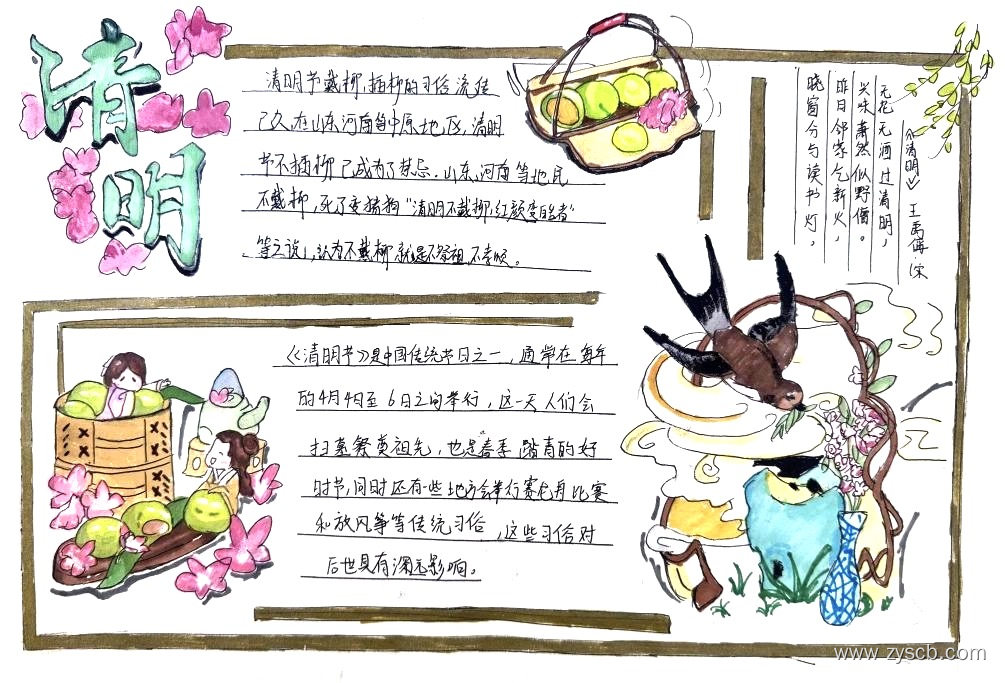 清明
清明节戴柳,插柳的习俗流传
已久,在山东河南等中原地区,清明
节不插柳已成为了禁忌。山东,河南等地,民
不戴柳,死了变猪狗"清明不戴柳,红颜变皓首"
等之说,认为不戴柳就是不祭祖,不孝顺。
《清明》 王禹偁(宋
无花无酒过清明,
兴味萧然似野僧。
昨日邻家乞新火,
晓窗分与读书灯。
《清明节》是中国传统节日之一,通常在每年
的4月4日至6日之间举行,这一天人们会
扫墓祭奠祖先,也是春季踏青的好
时节,同时还有些地方会举行赛龙舟比赛
和放风筝等传统习俗,这些习俗对
后世具有深远影响。
www.zyscb.com